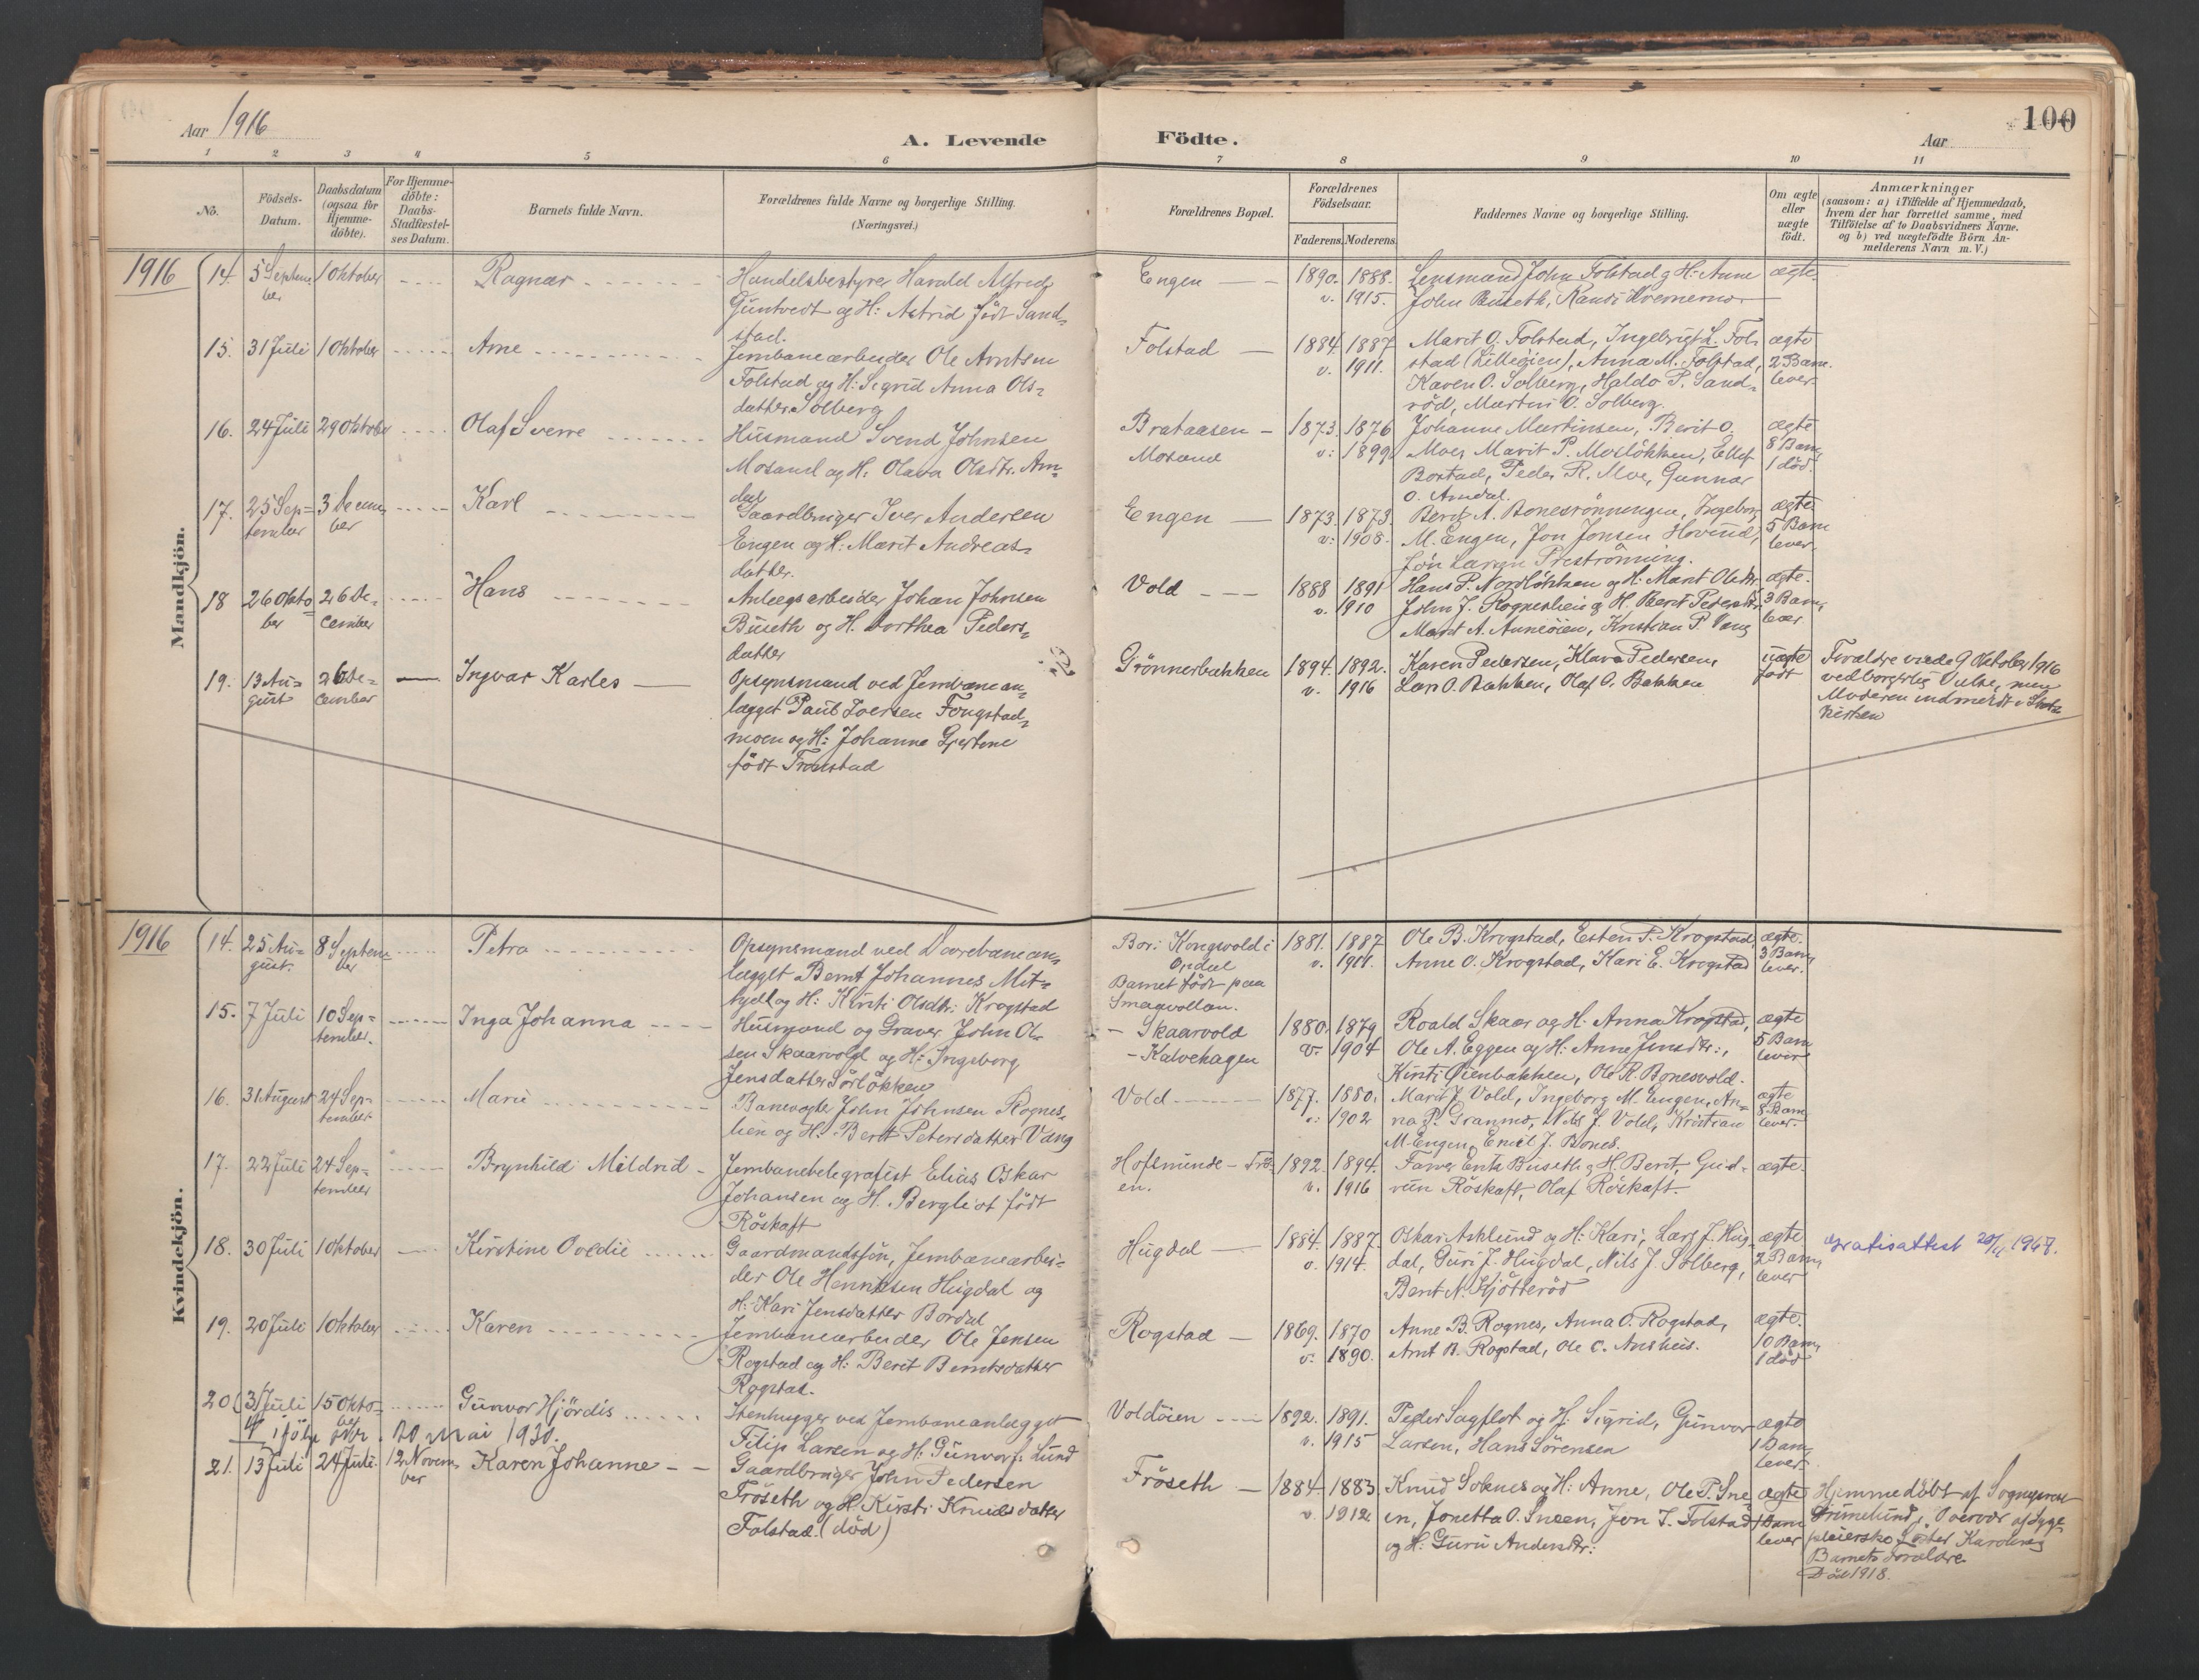 Aar 1916
A. Levende Födte.
Aar
100
1 2 3 4 5 6 7 8 9 10 11
No.
Födsels-
Datum.
Daabsdatum
(ogsaa for
Hjemme-
döbte).
For Hjemme-
döbte:
Daabs-
Stadfæstel-
ses Datum.
Barnets fulde Navn.
Forældrenes fulde Navne og borgerlige Stilling.
(Næringsvei.)
Forældrenes Bopæl.
Forældrenes
Födselsaar.
Faderens. Moderens.
Faddernes Navne og borgerlige Stilling.
Om ægte
eller
uægte
født.
Anmærkninger
(saasom: a) i Tilfælde af Hjemmedaab,
hvem der har forrettet samme, med
Tilföielse af to Daabsvidners Navne.
og b) ved uægtefödte Börn An-
melderens Navn m. V.)
Mandkjön.
1916
14. 5 Septem-
ber
1 Oktober
Ragnar
Handelsbestyrer Harald Alfred
Guntvedt og H: Astrid født Sand-
stad.
Engen
1890. 1888.
v. 1915.
Lensmand John Folstad og H: Anne
John Buseth, Randi Kvernmo
ægte
15. 31 Juli 1 Oktober
Arne
Jernbanearbeider Ole Arntsen
Folstad og H: Sigrid Anna Ols-
datter Solberg
Folstad
1884. 1887
v. 1911.
Marit O. Folstad, Ingebrigt L. Fol-
stad (Lilleøien), Anna M. Folstad,
Karen O. Solberg, Haldo P. Sand-
röd, Martin O. Solberg.
ægte
2 Barn
lever
16. 24 Juli 29 Oktober
Olaf Sverre
Husmand Svend Johnsen
Mosand og H: Olava Olsdtr. Am-
dal
Brataasen
Mosand
1873. 1876
v: 1899
Johanne Martinsen, Berit O.
Moer, Marit P. Moløkken, Ellef
Bortad, Peder R. Moe, Gunnar
O. Amdal.
ægte
8 Barn
1 död.
17. 25 Sep-
tember
3 Decem-
ber
Karl
Gaardbruger Iver Andersen
Engen og H: Marit Andreas-
datter.
Engen
1873. 1873.
v: 1908.
Berit A. Bonesrönningen, Ingeborg
M. Engen, Jon Jonsen Hovind,
Jön Larsen Preströnning.
ægte
5 Barn
lever
18 26 Okto-
ber
26 De-
cember
Hans
Anlægsarbeider Johan Johnsen
Buseth og H. Dorthea Peders-
datter
Vold
1888 1891
v. 1910
Hans P. Nordløkken og H: Marit Olsdtr.
John J. Rogneslien og H. Berit Pedersdtr
Marit A. Anneöien, Kristian P. Vang
ægte.
3 Barn
lever
19. 13 Au-
gust
26 De-
cember
Ingvar Karles
Opsynsmand ved Jernbanean-
lægget Paul Iversen Fougstad-
moen og H: Johanne Gjertine
født Fronstad
Grönnerbakken
1894. 1892.
v. 1916
Karen Pedersen, Klara Pedersen,
Lars O. Bakken, Olaf O. Bakken
uægte
født
Forældre viede 9 Oktober 1916
ved borgerlig Vielse, men
Moderen indmeldt i Stats-
kirken
Kvindekjön.
1916
14. 25 Au-
gust.
8 Septem-
ber
Petra
Opsynsmand ved Dovrebanean-
lægget Bernt Johannes Mit-
kjell og H: Kirsti Olsdtr: Krogstad
Bor: Kongsvold i
Opdal
Barnet født paa
Smaavollan.
1881. 1887
v. 1911.
Ole B. Krogstad, Esten P. Krogstad,
Anne O. Krogstad, Kari E. Krogstad
ægte.
3 Barn
lever.
15. 7 Juli 10 Sep-
tember.
Inga Johanna
Husmand og Graver John Ol-
sen Skaarvold og H: Ingeborg
Jensdatter Sörløkken
Skaarvold
Kalvehagen
1880. 1879
v: 1904
Roald Skaar og H: Anna Krogstad,
Ole A. Eggen og H: Anne Jensdtr:,
Kirsti Øienbakken, Ole R. Bonesvold.
ægte
5 Barn
lever
16. 31 August 24 Sep-
tember
Marie
Banevogter John Johnsen Rognes-
lien og H: Berit Petersdatter Vang
Vold
1877. 1880.
v: 1902
Marit J. Vold, Ingeborg M. Engen, An-
na P. Granmo, Nils J. Vold, Kristian
M. Engen, Emil J. Bones.
ægte
8 Barn
lever.
17. 22 Juli 24 Sep-
tember
Brynhild Mildrid
Jernbanetelegrafist Elias Oskar
Johansen og H. Bergliot født
Röskaft
1892. 1894.
v. 1916
Buseth og H. Berit, Gud-
run Röskaft, Olaf Röskaft.
ægte.
18. 30 Juli 1 Oktober
Kirstine Ovedie
Gaardmandssøn, Jernbanearbei-
der Ole Henriksen Hugdal og
H: Kari Jensdatter Bordal
Hugdal
1884. 1887.
v. 1914.
Oskar Asklund og H: Kari, Lars J. Hug-
dal, Guri J. Hugdal, Nils J. Solberg,
Berit N. Kjötteröd
ægte
2 Barn
lever
Gratisattest 1967.
19. 20 Juli 1 Oktober
Karen
Jernbanearbeider Ole Jensen
Rogstad og H: Berit Berntsdatter
Rogstad.
Rogstad
1869. 1870
v: 1890.
Anne B. Rognes, Anna O. Rogstad,
Arnt B. Rogstad, Ole C. Aashus.
ægte.
10 Barn
1 död
20 31 Juli 15 Okto-
ber
Gunvor Hjördis
4 ifölge
20 mai 1930.
Stenhugger ved Jernbaneanlægget
Filip Larsen og H: Gunvor f. Lund
Voldöien
1892. 1891.
v. 1915
Peder Sagflot og H: Sigrid, Gunvor
Larsen, Hans Sörensen
ægte
1 Barn
lever.
21. 13 Juli 24 Juli 12 Novem-
ber
Karen Johanne
Gaardbruger John Pedersen
Fröseth og H. Kirsti Knudsdatter
Folstad. (död)
Fröseth
1884. 1883
v. 1912
Knud Soknes og H: Anne, Ole P. Sne-
en, Jonetta O. Sneen, Jon I. Folstad
og H: Guru Andersdtr:
ægte
1 Barn
lever
Hjemmedöbt af Sogneprest
Grimelund, Overvær af Syge-
pleierske Söster Karoline
Barnets Forældre
Död 1918.